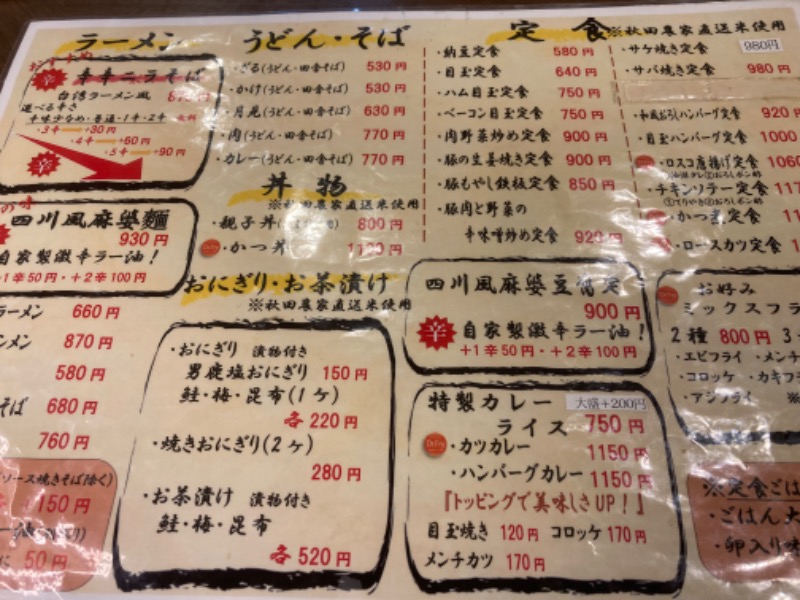 ラーメン
おすすめ
辛 辛辛ニラそば
台湾ラーメン風
選べる辛さ
辛味少なめ・普通・1辛・2辛 無料
・3辛 +30円
・4辛 +60円
・5辛 +90円
辛
の味
四川風麻婆麺
930円
自家製激辛ラー油！
+1辛50円・+2辛100円
ラーメン 660円
870円
580円
そば 680円
760円
ソース焼きそば除く)
+150円
50円
うどん・そば
・ざる(うどん・田舎そば) 530円
・かけ(うどん・田舎そば) 530円
・月見(うどん・田舎そば) 630円
・肉(うどん・田舎そば) 770円
・カレー(うどん・田舎そば) 770円
丼物
※秋田農家直送米使用
・親子丼 800円
・かつ丼
おにぎり・お茶漬け
※秋田農家直送米使用
・おにぎり 漬物付き
男鹿塩おにぎり 150円
鮭・梅・昆布(1ヶ)
各220円
・焼きおにぎり(2ヶ)
280円
・お茶漬け 漬物付き
鮭・梅・昆布
各520円
定食 ※秋田農家直送米使用
・納豆定食 580円
・目玉定食 640円
・ハム目玉定食 750円
・ベーコン目玉定食 750円
・肉野菜炒め定食 900円
・豚の生姜焼き定食 900円
・豚もやし鉄板定食 850円
・豚肉と野菜の
辛味噌炒め定食 920円
・サケ焼き定食 980円
・サバ焼き定食 980円
・和風おろしハンバーグ定食 920
・目玉ハンバーグ定食 1000
・ロスコ唐揚げ定食 1060
・チキンソテー定食
①てりやき②おろしポン酢
・かつ煮定食
・ロースカツ定食
四川風麻婆豆腐定
900円
辛 自家製激辛ラー油！
+1辛50円・+2辛100円
特製カレー 大盛+200円
ライス 750円
・カツカレー 1150円
・ハンバーグカレー 1150円
『トッピングで美味しさUP！』
目玉焼き 120円 コロッケ 170円
メンチカツ 170円
お好み
ミックスフラ
2種 800円 3
・エビフライ ・メンチ
・コロッケ ・カキフラ
・アジフライ ※
※定食ごは
・ごはん大
・卵入り味